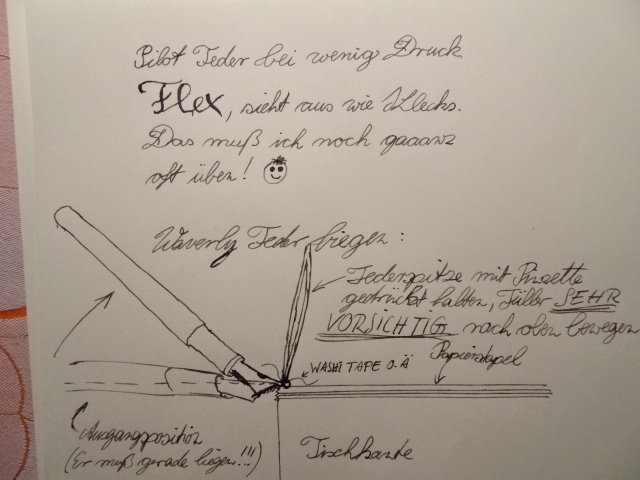 Pilot Feder bei wenig Druck
Flex, sieht aus wie 'n Klecks.
Das muß ich noch gaaanz
oft üben!
Waverly Feder biegen:
Federspitze mit Pinzette
gedrückt halten, Füller SEHR
VORSICHTIG nach oben bewegen
Papierstapel
WASHI TAPE O.Ä
Ausgangposition
(Er muß gerade liegen!!!)
Tischkante